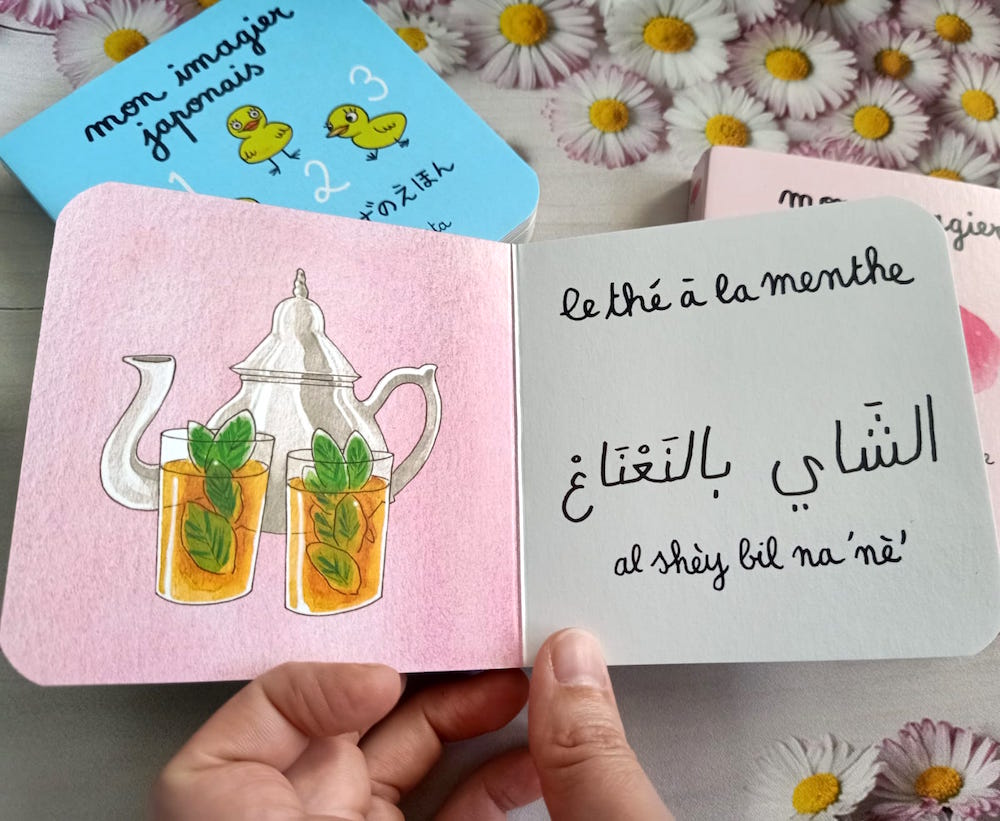 mon imagier
japonais
3
1
2
のえほん
le thé à la menthe
الشَّاي بالنَعْنَاعْ
al shèy bil na'nè'